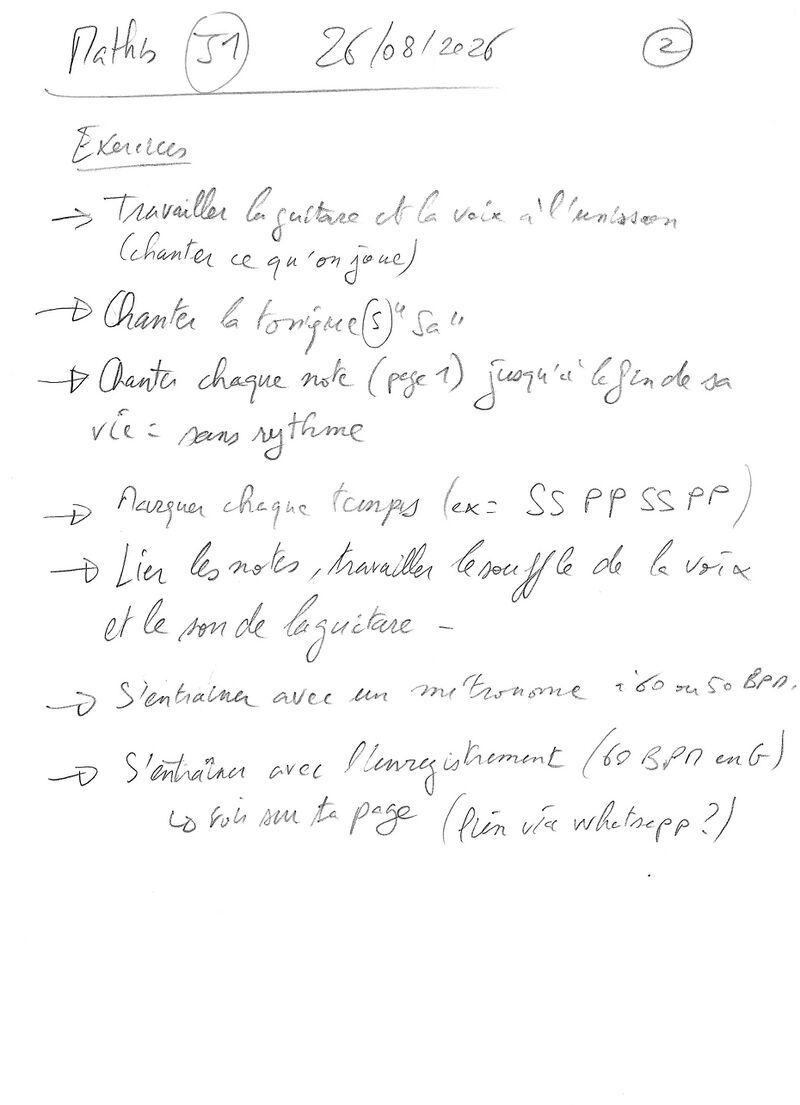 Mathis J1 26/08/2026 2
Exercices
→ Travailler la guitare et la voix à l'unisson
(chanter ce qu'on joue)
→ Chanter la tonique (S) "Sa"
→ Chanter chaque note (page 1) jusqu'à la fin de sa
vie = sans rythme
→ Marquer chaque temps (ex= SS PP SS PP)
→ Lier les notes, travailler le souffle de la voix
et le son de la guitare -
→ S'entraîner avec un métronome à 60 ou 50 BPM.
→ S'entraîner avec l'enregistrement (60 BPM en G)
↳ voir sur ta page (lien via whatsapp ?)